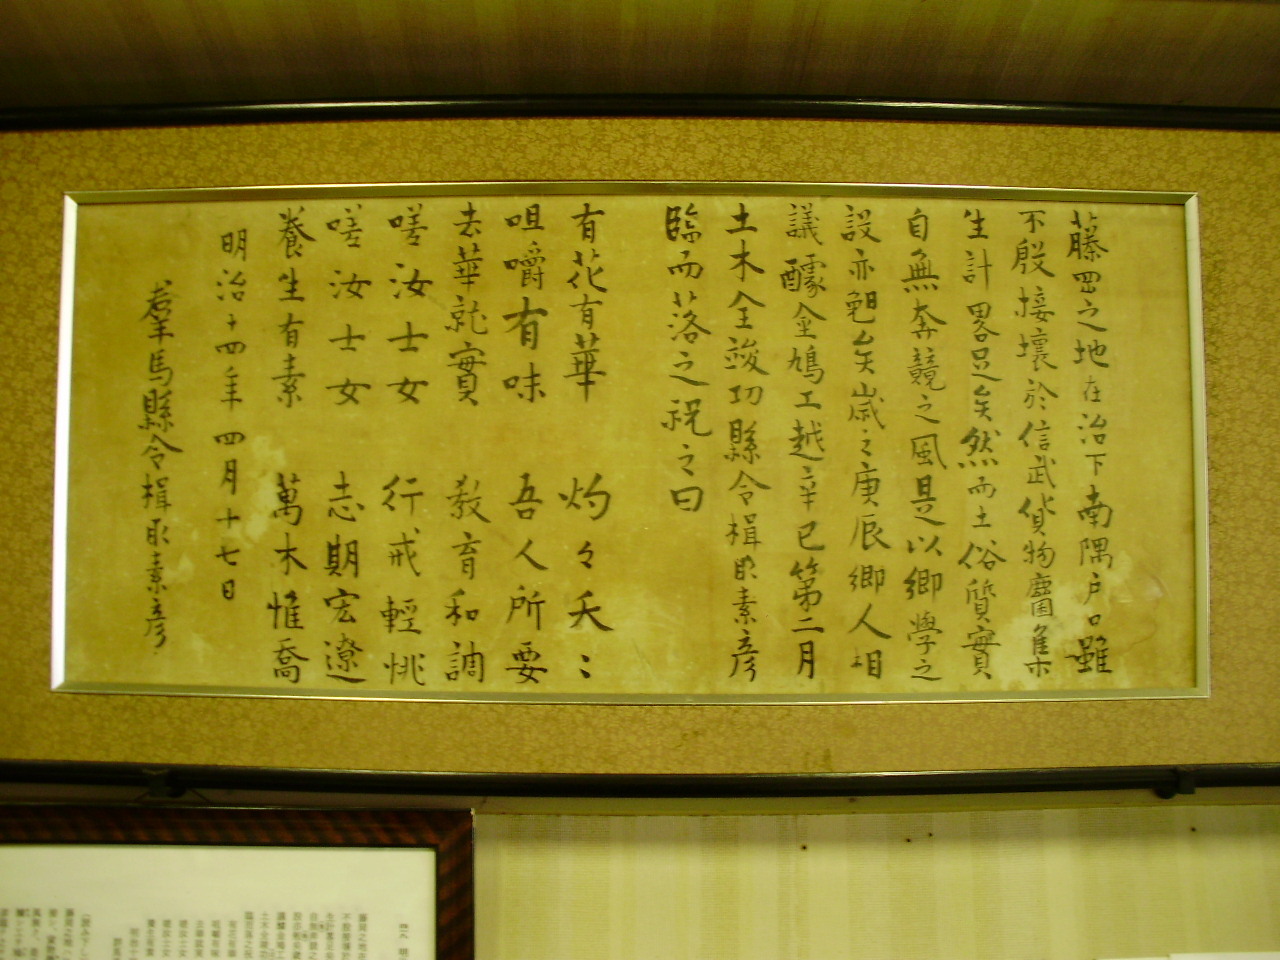 藤岡之地在治下南隅戸口雖
不殷接壤於信武貨物麕集
生計畧足矣然而土俗質實
自無奔競之風是以郷學之
設亦夥矣歳之庚辰郷人相
議醵金鳩工越辛巳第二月
土木全竣功縣令楫取素彦
臨而落之祝之曰
有花有華 灼々夭〻
咀嚼有味 吾人所要
去華就實 教育和調
嗟汝士女 行戒輕佻
嗟汝士女 志期宏遼
養生有素 萬木惟喬
明治十四年四月十七日
羣馬縣令楫取素彦